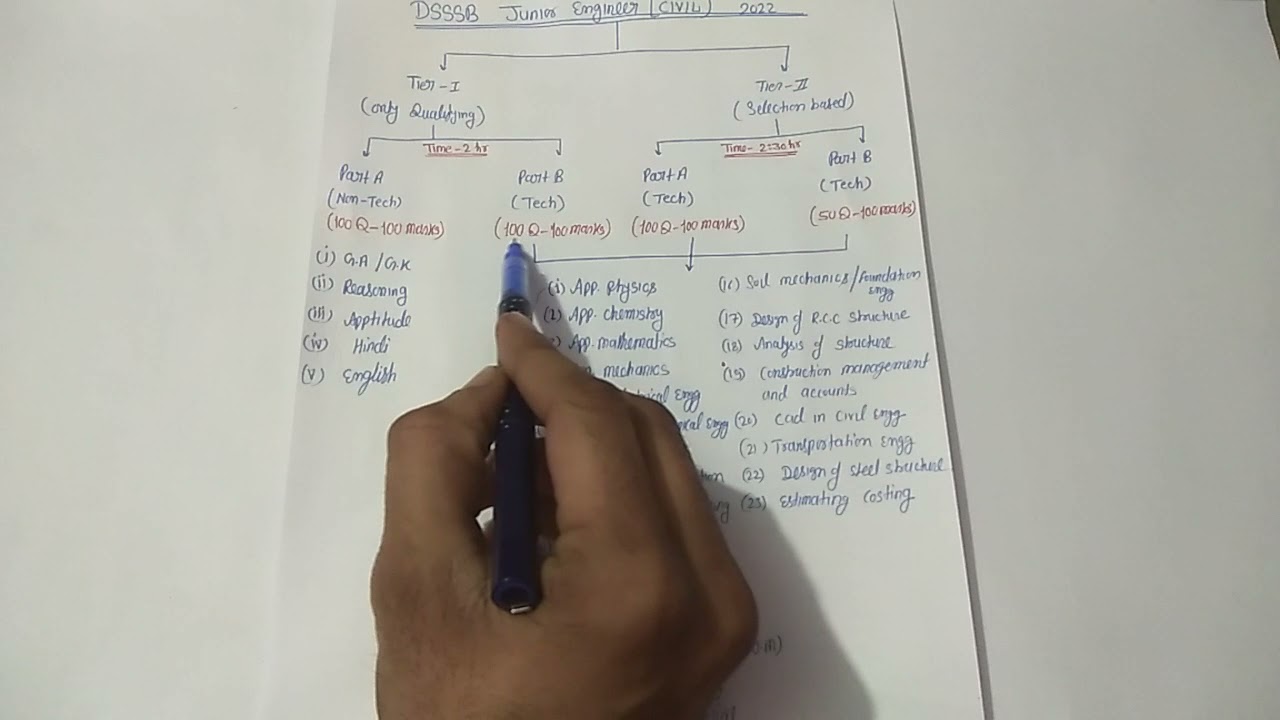 DSSSB Junior Engineer [CIVIL) 2022
Tier-I
(only Qualifying)
Time-2 hr
Part A
(Non-Tech)
(100 Q-100 marks)
(i) G.A/G.K
(ii) Reasoning
(iii) Apptitude
(iv) Hindi
(v) English
Part B
(Tech)
(100 Q-100 marks)
Tier-II
(Selection based)
Time- 2:30 hr
Part A
(Tech)
(100 Q-100 marks)
Part B
(Tech)
(50 Q-100 marks)
(1) App. Physics
(2) App. chemistry
App. mathematics
mechanics
Engg
Engg
(16) Soil mechanics/foundation
engg
(17) Design of R.C.C structure
(18) Analysis of structure
(19) Construction management
and accounts
(20) Cad in civil engg
(21) Transportation engg
(22) Design of steel structure
(23) Estimating Costing